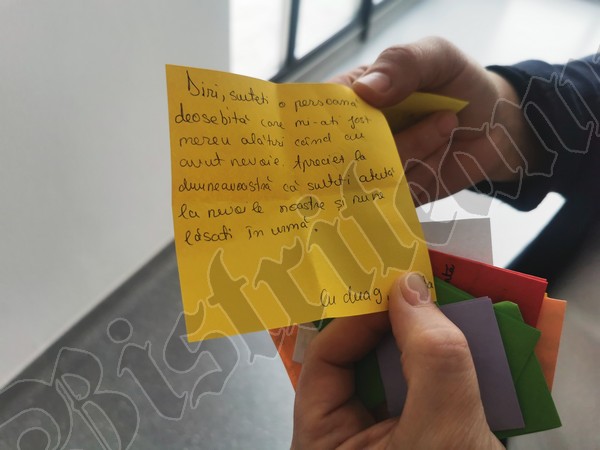 Diri, sunteți o persoană
deosebită care mi-ați fost
mereu alături când am
avut nevoie. Apreciez la
dumneavoastră că sunteți atentă
la nevoile noastre și nu ne
lăsați în urmă.
Cu drag,
Bistriteanu